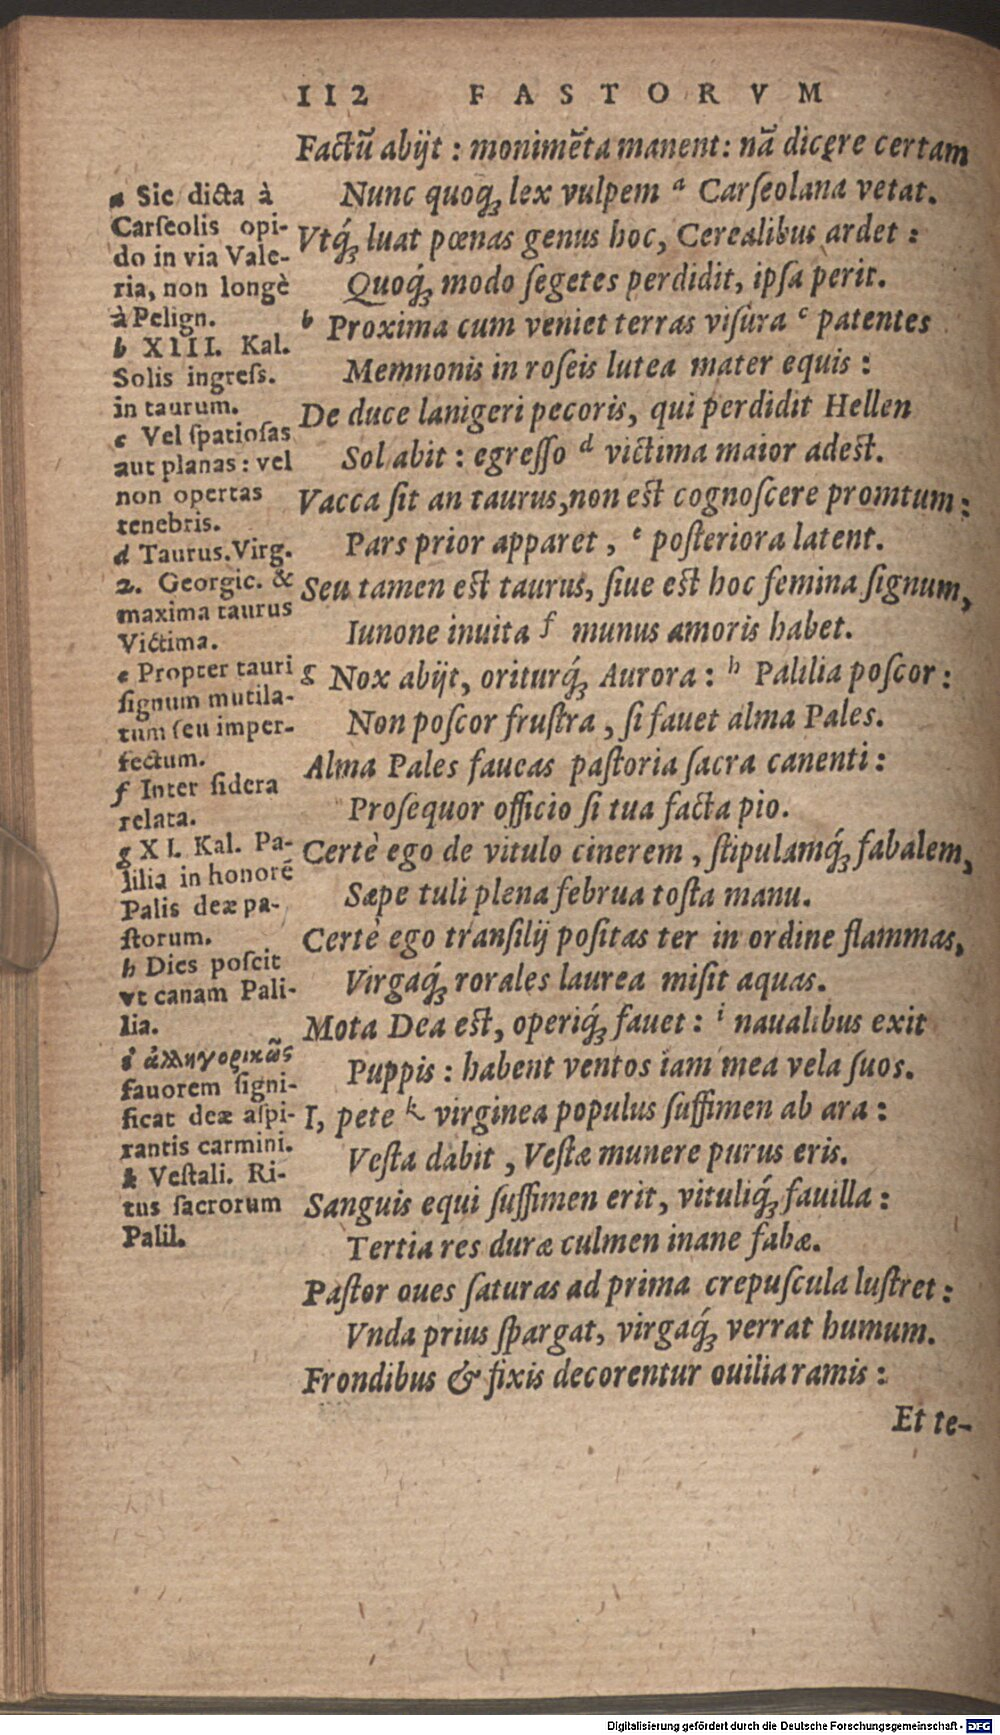 112 FASTORVM
Factũ abijt : monimẽta manent : nã dicere certam
Nunc quoq; lex vulpem a Carſeolana vetat.
Vtq́; luat pœnas genus hoc, Cerealibus ardet :
Quoq́; modo ſegetes perdidit, ipſa perit.
b Proxima cum veniet terras viſura c patentes
Memnonis in roſeis lutea mater equis :
De duce lanigeri pecoris, qui perdidit Hellen
Sol abit : egreſſo d victima maior adest.
Vacca ſit an taurus, non est cognoſcere promtum :
Pars prior apparet , e poſteriora latent.
Seu tamen est taurus, ſiue est hoc femina ſignum,
Iunone inuita f munus amoris habet.
g Nox abijt, oriturq́; Aurora : h Palilia poſcor :
Non poſcor fruſtra , ſi fauet alma Pales.
Alma Pales faueas paſtoria ſacra canenti :
Proſequor officio ſi tua facta pio.
Certè ego de vitulo cinerem , ſtipulamq́; fabalem,
Sæpe tuli plena februa toſta manu.
Certè ego tranſilij poſitas ter in ordine flammas,
Virgaq́; rorales laurea miſit aquas.
Mota Dea est, operiq́; fauet : i naualibus exit
Puppis : habent ventos iam mea vela ſuos.
I, pete k virginea populus ſuffimen ab ara :
Veſta dabit , Veſtæ munere purus eris.
Sanguis equi ſuffimen erit, vituliq́; fauilla :
Tertia res duræ culmen inane fabæ.
Paſtor oues ſaturas ad prima crepuſcula luſtret :
Vnda prius ſpargat, virgaq́; verrat humum.
Frondibus & fixis decorentur ouilia ramis :
Et te-
a Sic dicta à
Carſeolis opi-
do in via Vale-
ria, non longè
à Pelign.
b XIII. Kal.
Solis ingreſs.
in taurum.
c Vel ſpatioſas
aut planas : vel
non opertas
tenebris.
d Taurus. Virg.
2. Georgic. &
maxima taurus
Victima.
e Propter tauri
ſignum mutila-
tum ſeu imper-
fectum.
f Inter ſidera
relata.
g XI. Kal. Pa-
lilia in honorẽ
Palis deæ pa-
ſtorum.
h Dies poſcit
vt canam Pali-
lia.
i ἀλληγορικῶς
fauorem ſigni-
ficat deæ aſpi-
rantis carmini.
k Veſtali. Ri-
tus ſacrorum
Palil.
Digitalisierung gefördert durch die Deutsche Forschungsgemeinschaft - DFG